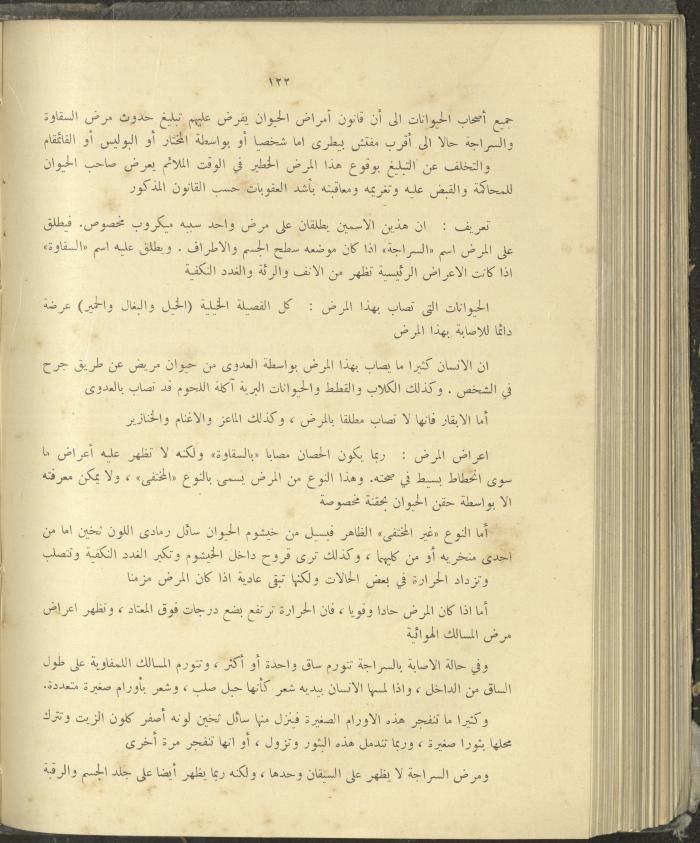 ١٢٢
جميع أصحاب الحيوانات الى أن قانون أمراض الحيوان يفرض عليهم تبليغ حدوث مرض السقاوة
والسراجة حالا الى أقرب مفتش بيطرى اما شخصيا أو بواسطة المختار أو البوليس أو القائمقام
والتخلف عن التبليغ بوقوع هذا المرض الخطير في الوقت الملائم يعرض صاحب الحيوان
للمحاكمة والقبض عليه وتغريمه ومعاقبته بأشد العقوبات حسب القانون المذكور
تعريف : ان هذين الاسمين يطلقان على مرض واحد سببه ميكروب مخصوص. فيطلق
على المرض اسم «السراجة» اذا كان موضعه سطح الجسم والاطراف . ويطلق عليه اسم «السقاوة»
اذا كانت الاعراض الرئيسية تظهر من الانف والرئة والغدد النكفية
الحيوانات التى تصاب بهذا المرض : كل الفصيلة الخيلية (الخيل والبغال والحمير) عرضة
دائما للاصابة بهذا المرض
ان الانسان كثيرا ما يصاب بهذا المرض بواسطة العدوى من حيوان مريض عن طريق جرح
في الشخص . وكذلك الكلاب والقطط والحيوانات البرية آكلة اللحوم قد تصاب بالعدوى
أما الابقار فانها لا تصاب مطلقا بالمرض ، وكذلك الماعز والاغنام والخنازير
اعراض المرض : ربما يكون الحصان مصابا «بالسقاوة» ولكنه لا تظهر عليه أعراض ما
سوى انحطاط بسيط في صحته. وهذا النوع من المرض يسمى بالنوع «المختفى» ، ولا يمكن معرفته
الا بواسطة حقن الحيوان بحقنة مخصوصة
أما النوع «غير المختفى» الظاهر فيسيل من خيشوم الحيوان سائل رمادى اللون ثخين اما من
احدى منخريه أو من كليهما ، وكذلك ترى قروح داخل الخيشوم وتكبر الغدد النكفية وتتصلب
وتزداد الحرارة في بعض الحالات ولكنها تبقى عادية اذا كان المرض مزمنا
أما اذا كان المرض حادا وقويا ، فان الحرارة ترتفع بضع درجات فوق المعتاد ، وتظهر اعراض
مرض المسالك الهوائية
وفي حالة الاصابة بالسراجة تتورم ساق واحدة أو أكثر ، وتتورم المسالك اللمفاوية على طول
الساق من الداخل ، واذا لمسها الانسان بيديه شعر كأنها حبل صلب ، وشعر بأورام صغيرة متعددة.
وكثيرا ما تنفجر هذه الاورام الصغيرة فينزل منها سائل ثخين لونه أصفر كلون الزيت وتترك
محلها بثورا صغيرة ، وربما تندمل هذه البثور وتزول ، أو انها تنفجر مرة أخرى
ومرض السراجة لا يظهر على السيقان وحدها ، ولكنه ربما يظهر أيضا على جلد الجسم والرقبة